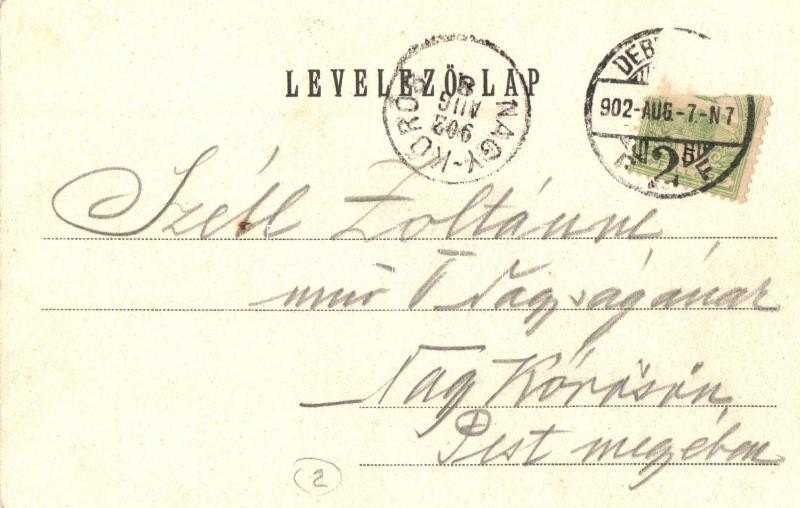 LEVELEZŐ-LAP
NAGY-KŐRÖS
902 AUG 8
DEB
902-AUG.-7.-N7
2
Szél Zoltánné
Nagyságának
Nagy Kőrösön,
Pest megyében
2